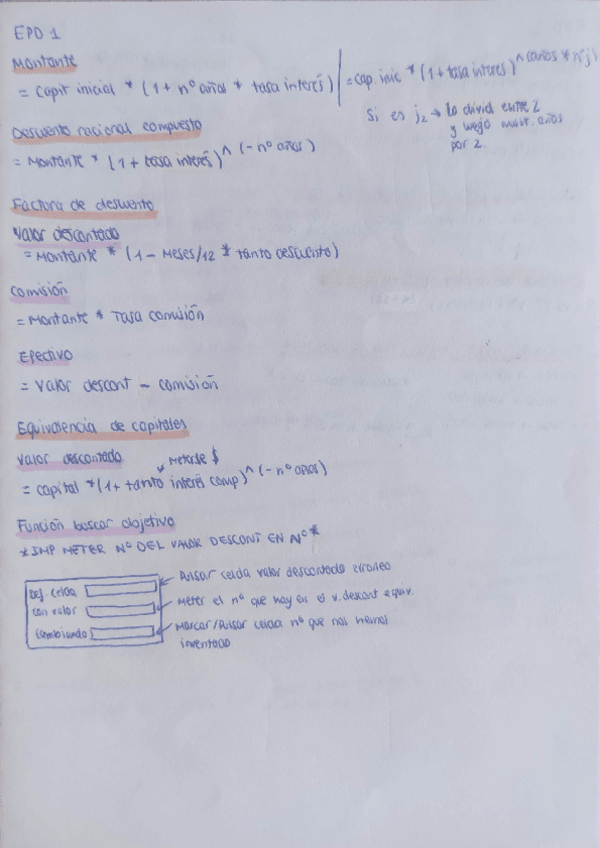 EPD 1
Montante
= Capit inicial * (1 + nº años * tasa interés) | = cap. inic * (1 + tasa interes)^(años * nº j)
Si es j2 → lo divid entre 2
y luego mult. años
por 2.
Descuento racional compuesto
= Montante * (1 + tasa interés)^(- nº años)
Factora de descuento
Valor descontado
= Montante * (1 - Meses/12 * tanto descuento)
Comisión
= Montante * Tasa comisión
Efectivo
= Valor descont - comisión
Equivalencia de capitales
Valor descontado
Meterse $
= Capital * (1 + tanto interés comp)^(- nº años)
Función buscar objetivo
* IMP METER Nº DEL VALOR DESCONT EN Nº *
Def. celda
Pulsar celda valor descontado erroneo
con valor
Meter el nº que hay en el v. descont equiv.
Cambiando
Marcar/Pulsar celda nº que nos hemos
inventado